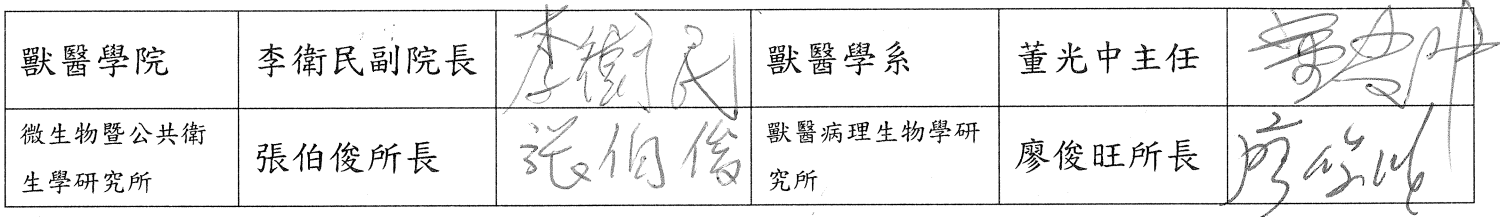 獸醫學院 李衛民副院長 李衛民 獸醫學系 董光中主任 董光中
微生物暨公共衛生學研究所 張伯俊所長 張伯俊 獸醫病理生物學研究所 廖俊旺所長 廖俊旺